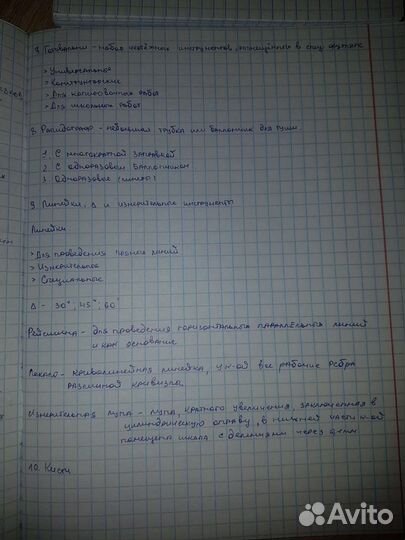 7. Готовальня - набор чертёжных инструментов, помещённых в спец. футляре
> Универсальные
> Конструкторские
> Для копировочных работ
> Для школьных работ
8. Рапидограф - небольшая трубка или баллончик для туши.
1. С многократной заправкой
2. С одноразовым баллончиком
3. Одноразовые (линеры)
9. Линейки, Δ и измерительные инструменты
Линейки
> Для проведения прямых линий
> Измерительные
> Специальные
Δ - 30°; 45°; 60°
Рейсшина - для проведения горизонтальных параллельных линий
и как основание
Лекало - криволинейная линейка, у к-ой все рабочие ребра
различной кривизны.
Измерительная лупа - лупа, кратного увеличения, заключенная в
цилиндрическую оправу, в нижней части к-ой
помещена шкала с делениями через
10. Кисти
Avito